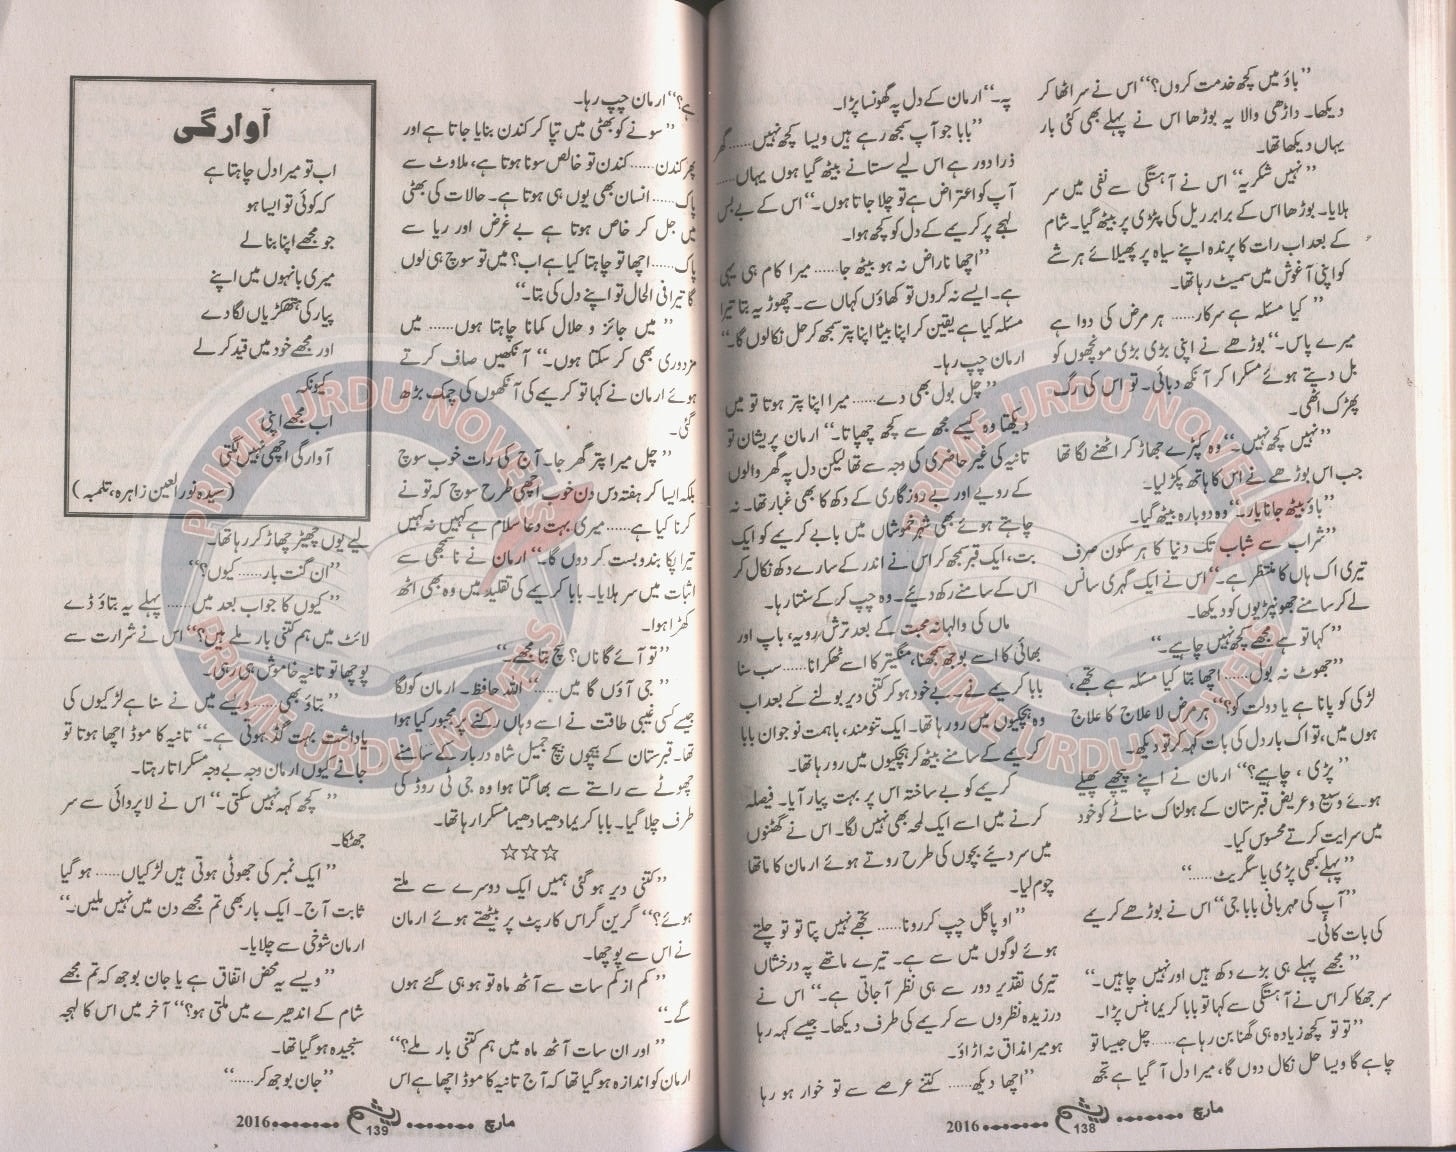 ”باؤ میں کچھ خدمت کروں؟“ اس نے سر اٹھا کر
دیکھا۔ داڑھی والا یہ بوڑھا اس نے پہلے بھی کئی بار
یہاں دیکھا تھا۔
”نہیں شکریہ“ اس نے آہستگی سے نفی میں سر
ہلایا۔ بوڑھا اس کے برابر ریل کی پٹڑی پر بیٹھ گیا۔ شام
کے بعد اب رات کا پرندہ اپنے سیاہ پر پھیلائے ہر شے
کو اپنی آغوش میں سمیٹ رہا تھا۔
”کیا مسئلہ ہے سرکار...... ہر مرض کی دوا ہے
میرے پاس۔“ بوڑھے نے اپنی بڑی بڑی مونچھوں کو
بل دیتے ہوئے مسکرا کر آنکھ دبائی۔ تو اس کی رگ
پھڑک اٹھی۔
”نہیں کچھ نہیں۔“ وہ کپڑے جھاڑ کر اٹھنے لگا تھا
جب اس بوڑھے نے اس کا ہاتھ پکڑ لیا۔
”باؤ بیٹھ جانا یار۔“ وہ دوبارہ بیٹھ گیا۔
”شراب سے شباب تک دنیا کا ہر سکون صرف
تیری اک ہاں کا منتظر ہے۔“ اس نے ایک گہری سانس
لے کر سامنے جھونپڑیوں کو دیکھا۔
”کہا تو ہے مجھے کچھ نہیں چاہیے۔“
”جھوٹ نہ بول...... اچھا بتا کیا مسئلہ ہے تجھے،
لڑکی کو پانا ہے یا دولت کو؟“ ہر مرض لا علاج کا علاج
ہوں میں، تو اک بار دل کی بات کہہ کر تو دیکھ۔
”پڑی، چاہیے؟“ ارمان نے اپنے پیچھے پھیلے
ہوئے وسیع و عریض قبرستان کے ہولناک سناٹے کو خود
میں سرایت کرتے محسوس کیا۔
”پہلے کبھی پڑی یا سگریٹ......“
”آپ کی مہربانی بابا جی“ اس نے بوڑھے کریمے
کی بات کاٹی۔
”مجھے پہلے ہی بڑے دکھ ہیں اور نہیں چاہیں۔“
سر جھکا کر اس نے آہستگی سے کہا تو بابا کریما ہنس پڑا۔
”تو تو کچھ زیادہ ہی گھنا بن رہا ہے...... چل جیسا تو
چاہے گا ویسا حل نکال دوں گا، میرا دل آ گیا ہے تجھ
پہ۔“ ارمان کے دل پہ گھونسا پڑا۔
”بابا جو آپ سمجھ رہے ہیں ویسا کچھ نہیں...... گھر
ذرا دور ہے اس لیے سستانے بیٹھ گیا ہوں یہاں......
آپ کو اعتراض ہے تو چلا جاتا ہوں۔“ اس کے بے بس
لہجے پر کریمے کے دل کو کچھ ہوا۔
”اچھا ناراض نہ ہو بیٹھ جا...... میرا کام ہی یہی
ہے۔ ایسے نہ کروں تو کھاؤں کہاں سے۔ چھوڑ یہ بتا تیرا
مسئلہ کیا ہے یقین کر اپنا بیٹا اپنا پتر سمجھ کر حل نکالوں گا۔“
ارمان چپ رہا۔
”چل بول بھی دے...... میرا اپنا پتر ہوتا تو میں
دیکھتا وہ کیسے مجھ سے کچھ چھپاتا۔“ ارمان پریشان تو
تانیہ کی غیر حاضری کی وجہ سے تھا لیکن دل پہ گھر والوں
کے رویے اور بے روزگاری کے دکھ کا بھی غبار تھا۔ نہ
چاہتے ہوئے بھی شہر خموشاں میں بابے کریمے کو ایک
بت، ایک قبر سمجھ کر اس نے اندر کے سارے دکھ نکال کر
اس کے سامنے رکھ دیے۔ وہ چپ کر کے سنتا رہا۔
ماں کی والہانہ محبت کے بعد ترش رویہ، باپ اور
بھائی کا اسے بوجھ سمجھنا، منگیتر کا اسے ٹھکرانا...... سب سنا
بابا کریمے نے۔ بے خود ہو کر کتنی دیر بولنے کے بعد اب
وہ ہچکیوں میں رو رہا تھا۔ ایک تنومند، باہمت نوجوان بابا
کریمے کے سامنے بیٹھ کر ہچکیوں میں رو رہا تھا۔
کریمے کو بے ساختہ اس پر بہت پیار آیا۔ فیصلہ
کرنے میں اسے ایک لمحہ بھی نہیں لگا۔ اس نے گھٹنوں
میں سر دیئے بچوں کی طرح روتے ہوئے ارمان کا ماتھا
چوم لیا۔
”او پاگل چپ کر رونا...... تجھے نہیں پتا تو تو چلتے
ہوئے لوگوں میں سے ہے۔ تیرے ماتھے پہ درخشاں
تیری تقدیر دور سے ہی نظر آ جاتی ہے۔“ اس نے
درزیدہ نظروں سے کریمے کی طرف دیکھا۔ جیسے کہہ رہا
ہو میرا مذاق نہ اڑاؤ۔
”اچھا دیکھ...... کتنے عرصے سے تو خوار ہو رہا
مارچ 138 2016
ہے؟“ ارمان چپ رہا۔
”سونے کو بھٹی میں تپا کر کندن بنایا جاتا ہے اور
پھر کندن...... کندن تو خالص سونا ہوتا ہے، ملاوٹ سے
پاک...... انسان بھی یوں ہی ہوتا ہے۔ حالات کی بھٹی
میں جل کر خاص ہوتا ہے بے غرض اور ریا سے
پاک...... اچھا تو چاہتا کیا ہے اب؟ میں تو سوچ ہی لوں
گا تیرا فی الحال تو اپنے دل کی بتا۔“
”میں جائز و حلال کمانا چاہتا ہوں...... میں
مزدوری بھی کر سکتا ہوں۔“ آنکھیں صاف کرتے
ہوئے ارمان نے کہا تو کریمے کی آنکھوں کی چمک بڑھ
گئی۔
”چل میرا پتر گھر جا۔ آج کی رات خوب سوچ
بلکہ ایسا کر ہفتہ دس دن خوب اچھی طرح سوچ کہ تو نے
کرنا کیا ہے...... میری بہت دعا سلام ہے کہیں نہ کہیں
تیرا پکا بندوبست کر دوں گا۔“ ارمان نے نا سمجھی سے
اثبات میں سر ہلایا۔ بابا کریمے کی تقلید میں وہ بھی اٹھ
کھڑا ہوا۔
”تو آئے گا ناں؟ سچ بتا مجھے۔“
”جی آؤں گا میں......“ اللہ حافظ۔ ارمان کو لگا
جیسے کسی غیبی طاقت نے اسے وہاں رکنے پر مجبور کیا ہوا
تھا۔ قبرستان کے بیچوں بیچ جمیل شاہ دربار کے سامنے
چھوٹے سے راستے سے بھاگتا ہوا وہ جی ٹی روڈ کی
طرف چلا گیا۔ بابا کریما دھیما دھیما مسکرا رہا تھا۔
☆☆☆
”کتنی دیر ہو گئی ہمیں ایک دوسرے سے ملتے
ہوئے؟“ گرین گراس کارپٹ پر بیٹھتے ہوئے ارمان
نے اس سے پوچھا۔
”کم از کم سات سے آٹھ ماہ تو ہو ہی گئے ہوں
گے۔“
”اور ان سات آٹھ ماہ میں ہم کتنی بار ملے؟“
ارمان کو اندازہ ہو گیا تھا کہ آج تانیہ کا موڈ اچھا ہے اس
آوارگی
اب تو میرا دل چاہتا ہے
کہ کوئی تو ایسا ہو
جو مجھے اپنا بنا لے
میری بانہوں میں اپنے
پیار کی ہتھکڑیاں لگا دے
اور مجھے خود میں قید کر لے
کیونکہ
اب مجھے اپنی
آوارگی اچھی نہیں لگتی
(سیدہ نور العین زاہرہ، تلمبہ)
لیے یوں چھیڑ چھاڑ کر رہا تھا۔
”ان گنت بار...... کیوں؟“
”کیوں کا جواب بعد میں...... پہلے یہ بتاؤ ڈے
لائٹ میں ہم کتنی بار ملے ہیں؟“ اس نے شرارت سے
پوچھا تو تانیہ خاموش ہی رہی۔
”بتاؤ بھی...... ویسے میں نے سنا ہے لڑکیوں کی
یادداشت بہت گڈ ہوتی ہے۔“ تانیہ کا موڈ اچھا ہوتا تو
جانے کیوں ارمان وجہ بے وجہ مسکراتا رہتا۔
”کچھ کہہ نہیں سکتی۔“ اس نے لاپروائی سے سر
جھٹکا۔
”ایک نمبر کی جھوٹی ہوتی ہیں لڑکیاں...... ہو گیا
ثابت آج۔ ایک بار بھی تم مجھے دن میں نہیں ملیں۔“
ارمان شوخی سے چلایا۔
”ویسے یہ محض اتفاق ہے یا جان بوجھ کہ تم مجھے
شام کے اندھیرے میں ملتی ہو؟“ آخر میں اس کا لہجہ
سنجیدہ ہو گیا تھا۔
”جان بوجھ کر......“
مارچ 139 2016
PRIME URDU NOVELS
PRIME URDU NOVELS
PRIME URDU NOVELS
PRIME URDU NOVELS